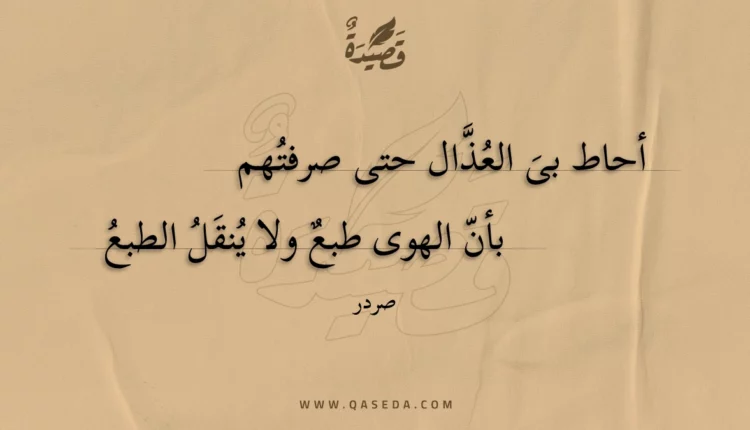 قَصِيْدَةٌ
أحاط بىَ العُذَّال حتى صرفتُهم
بأنّ الهوى طبعٌ ولا يُنقَلُ الطبعُ
صردر
WWW.QASEDA.COM